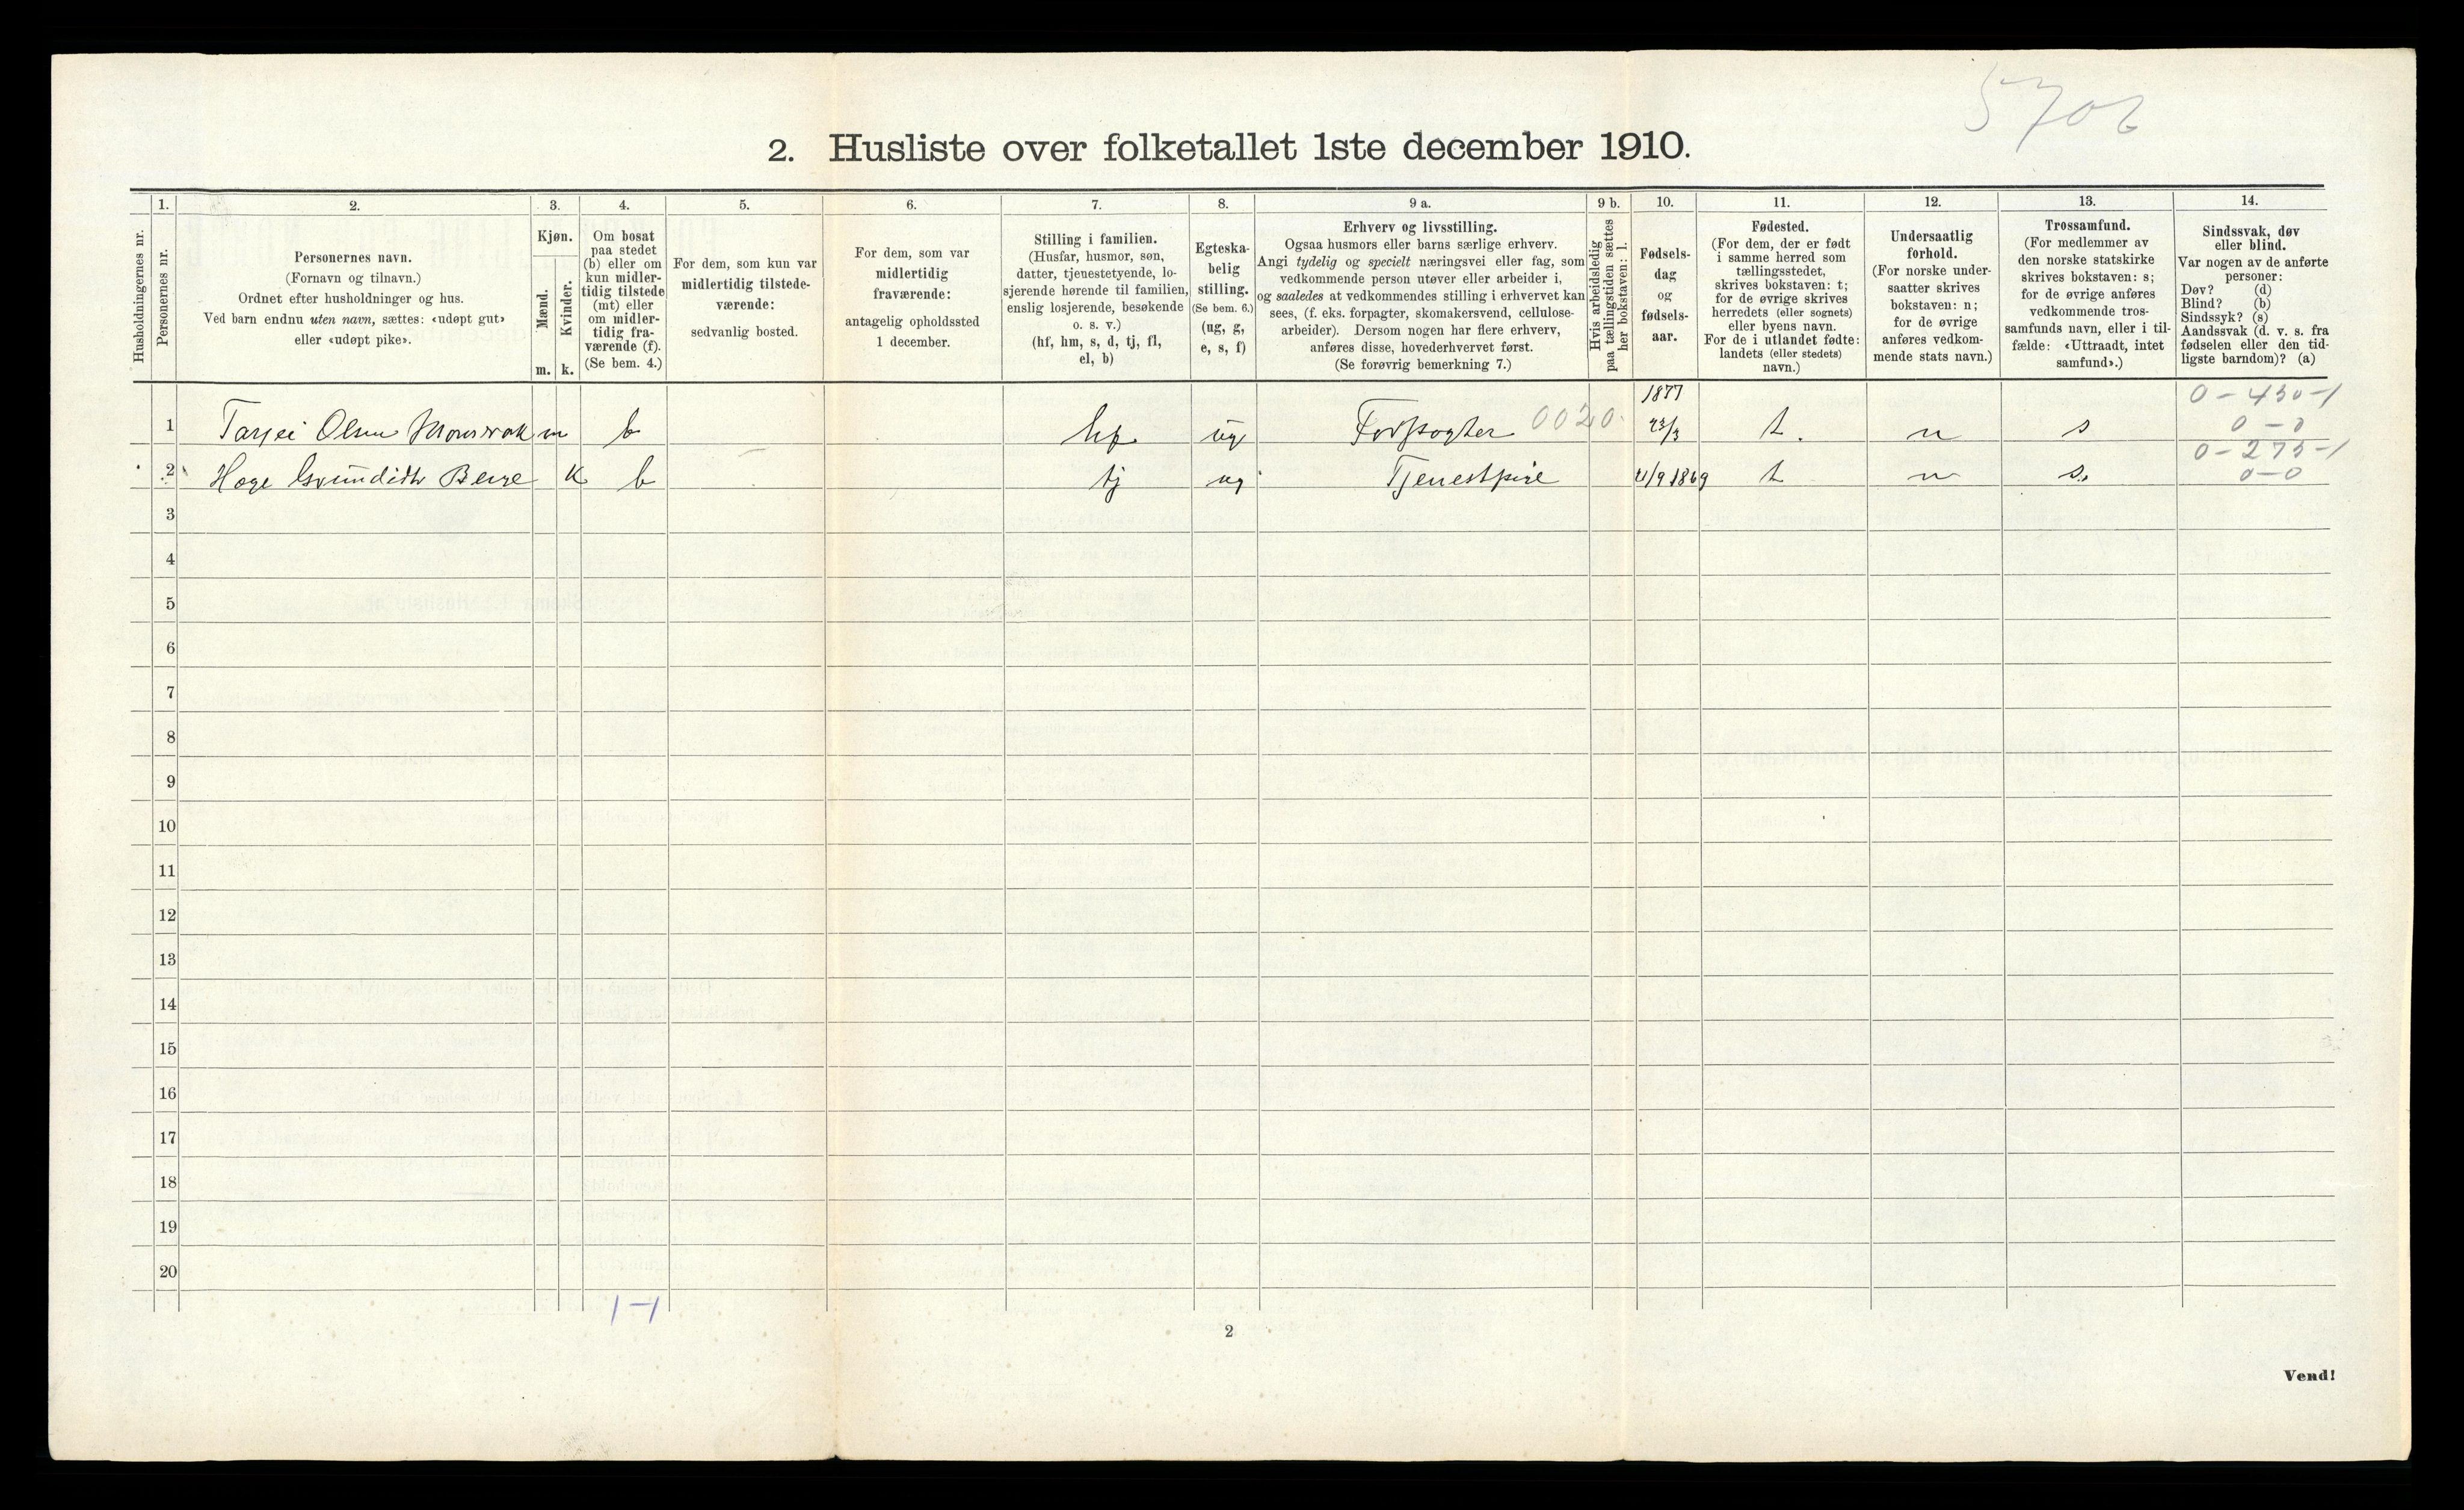 5706
2. Husliste over folketallet 1ste december 1910.
Husholdningernes nr.
1.
Personernes nr.
2.
Personernes navn.
(Fornavn og tilnavn.)
Ordnet efter husholdninger og hus.
Ved barn endnu uten navn, sættes: «udøpt gut»
eller «udøpt pike».
3.
Kjøn.
Mænd.
Kvinder.
m. k.
4.
Om bosat
paa stedet
(b) eller om
kun midler-
tidig tilstede
(mt) eller
om midler-
tidig fra-
værende (f).
(Se bem. 4.)
5.
For dem, som kun var
midlertidig tilstede-
værende:
sedvanlig bosted.
6.
For dem, som var
midlertidig
fraværende:
antagelig opholdssted
1 december.
7.
Stilling i familien.
(Husfar, husmor, søn,
datter, tjenestetyende, lo-
sjerende hørende til familien,
enslig losjerende, besøkende
o. s. v.)
(hf, hm, s, d, tj, fl,
el, b)
8.
Egteska-
belig
stilling.
(Se bem. 6.)
(ug, g,
e, s, f)
9 a.
Erhverv og livsstilling.
Ogsaa husmors eller barns særlige erhverv.
Angi tydelig og specielt næringsvei eller fag, som
vedkommende person utøver eller arbeider i,
og saaledes at vedkommendes stilling i erhvervet kan
sees, (f. eks. forpagter, skomakersvend, cellulose-
arbeider). Dersom nogen har flere erhverv,
anføres disse, hovederhvervet først.
(Se forøvrig bemerkning 7.)
9 b.
Hvis arbeidsledig
paa tællingstiden sættes
her bokstaven: l.
10.
Fødsels-
dag
og
fødsels-
aar.
11.
Fødested.
(For dem, der er født
i samme herred som
tællingsstedet,
skrives bokstaven: t;
for de øvrige skrives
herredets (eller sognets)
eller byens navn.
For de i utlandet fødte:
landets (eller stedets)
navn.)
12.
Undersaatlig
forhold.
(For norske under-
saatter skrives
bokstaven: n;
for de øvrige
anføres vedkom-
mende stats navn.)
13.
Trossamfund.
(For medlemmer av
den norske statskirke
skrives bokstaven: s;
for de øvrige anføres
vedkommende tros-
samfunds navn, eller i til-
fælde: «Uttraadt, intet
samfund».)
14.
Sindssvak, døv
eller blind.
Var nogen av de anførte
personer:
Døv? (d)
Blind? (b)
Sindssyk? (s)
Aandssvak (d. v. s. fra
fødselen eller den tid-
ligste barndom)? (a)
1877 0-430-1
1 Tarjei Olsen m b hf ug Forpagter 0020 23/3 t. n s 0-0
0-275-1
2 k b tj ug 1869 t n s. 0-0
3
4
5
6
7
8
9
10
11
12
13
14
15
16
17
18
19
20
1-1
2
Vend!